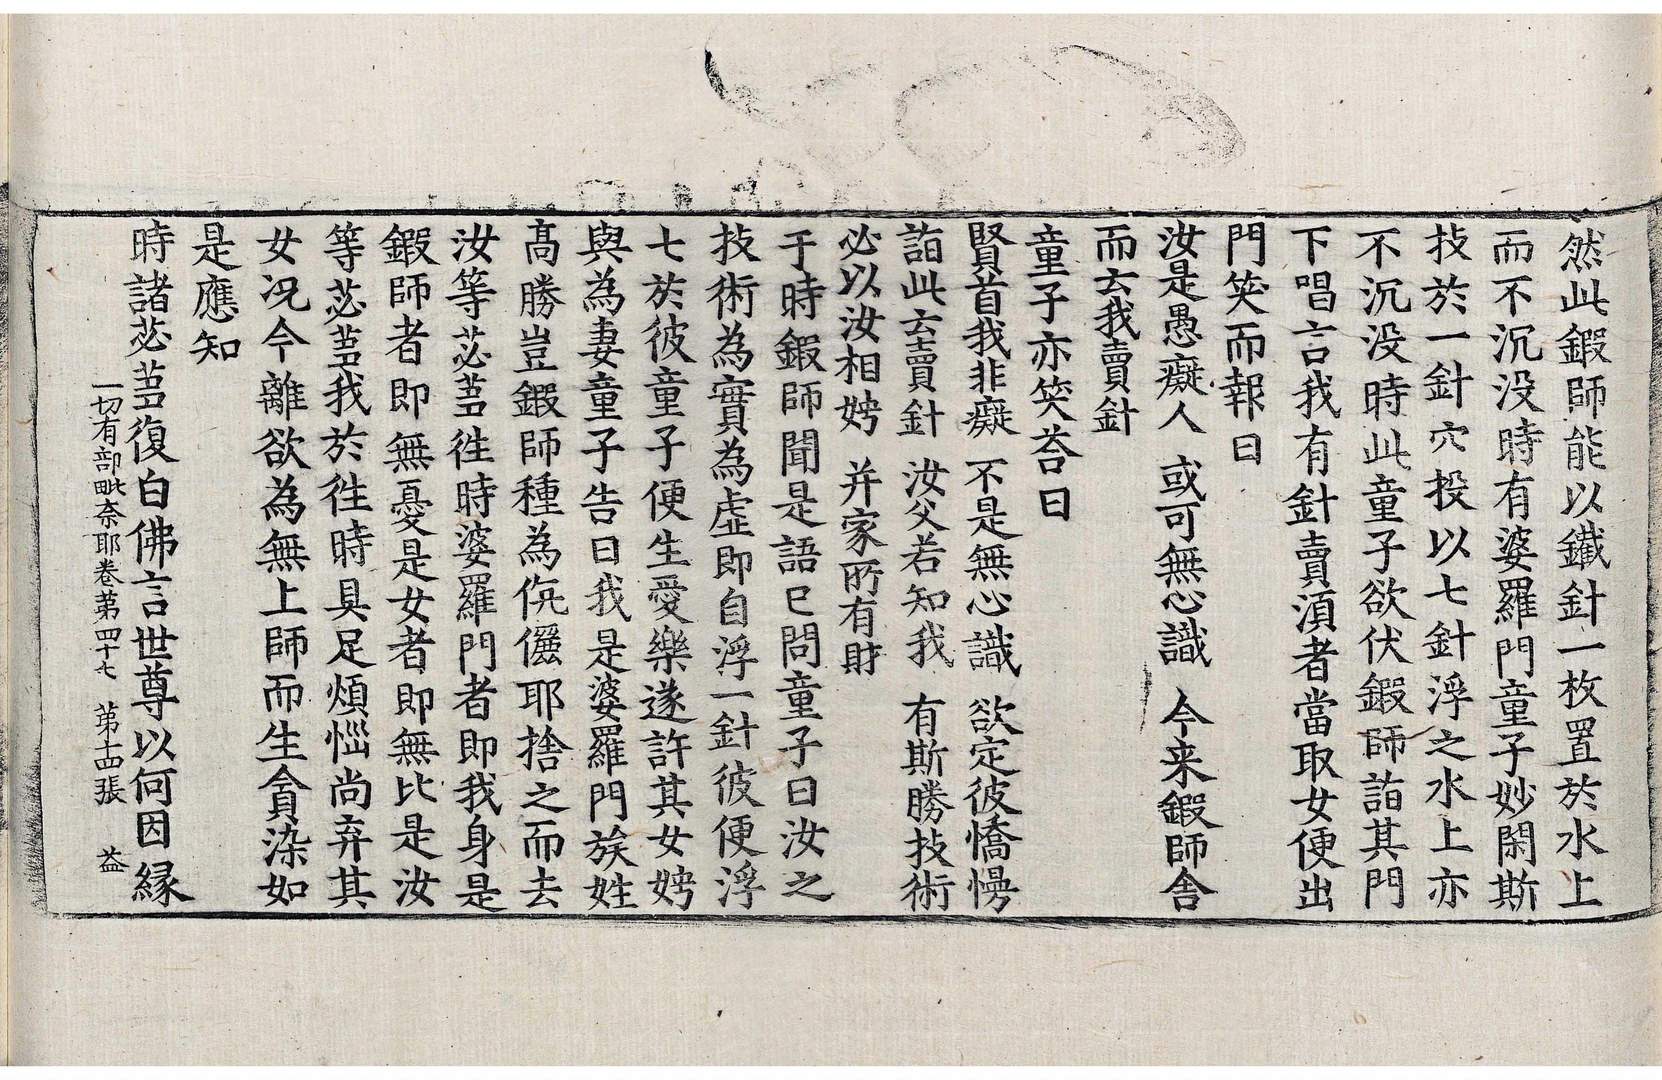 然此鍜師能以鐵針一枚置於水上
而不沉没時有婆羅門童子妙閑斯
技於一針穴投以七針浮之水上亦
不沉没時此童子欲伏鍜師詣其門
下唱言我有針賣湏者當取女便出
門笑而報曰
汝是愚癡人 或可無心識 今来鍜師舎
而去我賣針
童子亦笑荅曰
賢首我非癡 不是無心識 欲定彼憍慢
詣此去賣針 汝父若知我 有斯勝技術
必以汝相娉 并家所有財
于時鍜師聞是語已問童子曰汝之
技術為實為虚即自浮一針彼便浮
七於彼童子便生愛樂遂許其女娉
與為妻童子告曰我是婆羅門族姓
髙勝豈鍜師種為伉儷耶捨之而去
汝等苾芻徃時婆羅門者即我身是
鍜師者即無憂是女者即無比是汝
等苾芻我於徃時具足煩惱尚弃其
女况今離欲為無上師而生貪染如
是應知
時諸苾芻復白佛言世尊以何因縁
一切有部毗奈耶卷苐四十七 苐十四張 益